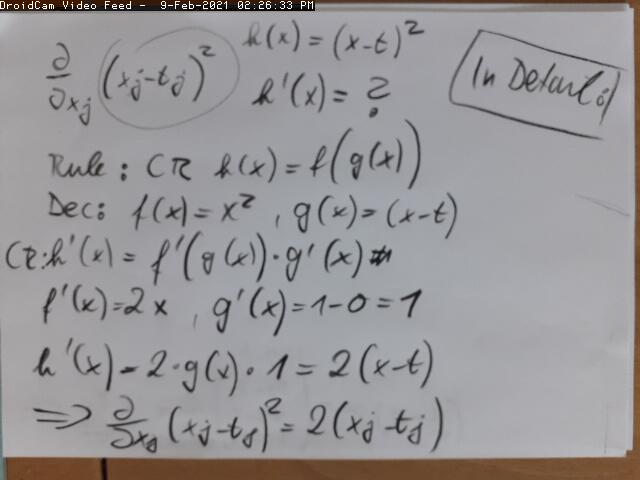 DroidCam Video Feed - 9-Feb-2021 02:26:33 PM
∂/∂xj (xj-tj)² h(x) = (x-t)²
h'(x) = ?
In Detail:
Rule: CR h(x) = f(g(x))
Dec: f(x) = x², g(x) = (x-t)
CR: h'(x) = f'(g(x)) · g'(x)
f'(x) = 2x, g'(x) = 1-0 = 1
h'(x) = 2·g(x)·1 = 2(x-t)
⇒ ∂/∂xj (xj-tj)² = 2(xj-tj)